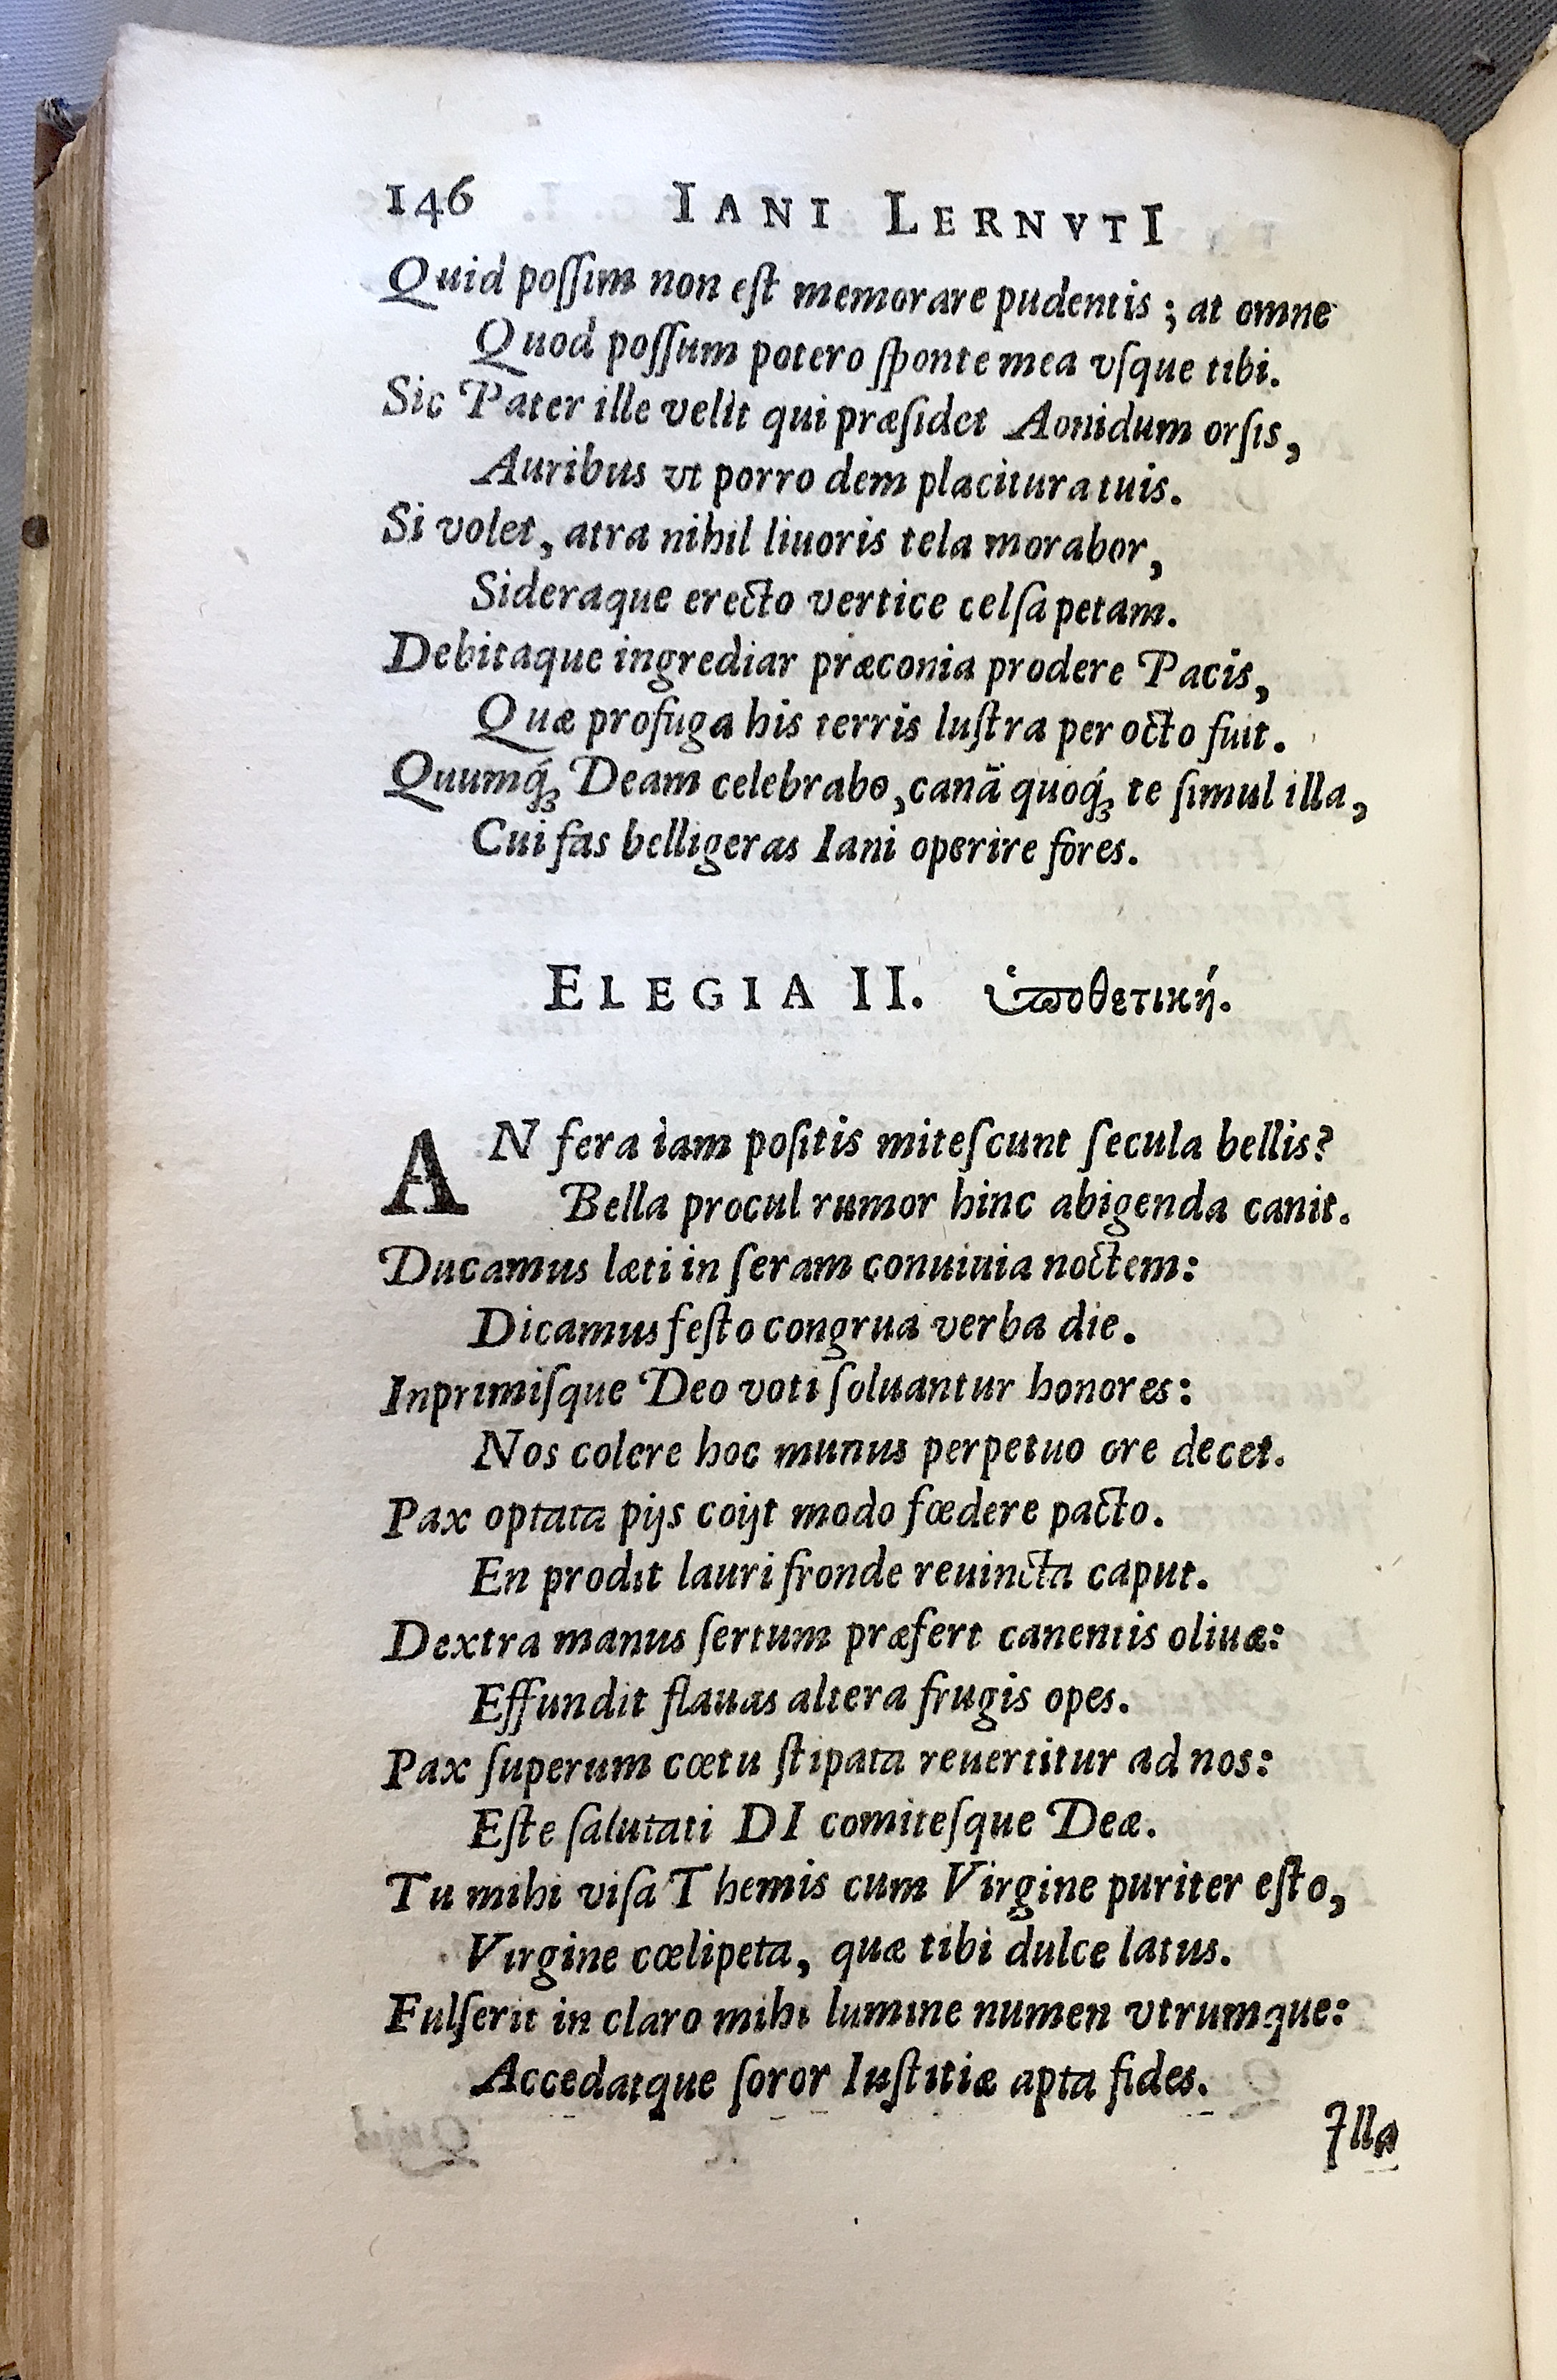 146 IANI LERNVTI
Quid poſſim non eſt memorare pudentis; at omne
Quod poſſum potero ſponte mea vſque tibi.
Sic Pater ille velit qui præſidet Aonidum orſis,
Auribus vt porro dem placitura tuis.
Si volet, atra nihil liuoris tela morabor,
Sideraque erecto vertice celſa petam.
Debitaque ingrediar præconia prodere Pacis,
Quæ profuga his terris luſtra per octo fuit.
Quumq́; Deam celebrabo, canā quoq́; te ſimul illa,
Cui fas belligeras Iani operire fores.
ELEGIA II. ὑποθετική.
AN fera iam poſitis miteſcunt ſecula bellis?
Bella procul rumor hinc abigenda canit.
Ducamus læti in ſeram conuiuia noctem:
Dicamus feſto congrua verba die.
Inprimiſque Deo voti ſoluantur honores:
Nos colere hoc munus perpetuo ore decet.
Pax optata pijs coijt modo fœdere pacto.
En prodit lauri fronde reuincta caput.
Dextra manus ſertum præfert canentis oliuæ:
Effundit flauas altera frugis opes.
Pax ſuperum cœtu ſtipata reuertitur ad nos:
Eſte ſalutati DI comiteſque Deæ.
Tu mihi viſa Themis cum Virgine puriter eſto,
Virgine cœlipeta, quæ tibi dulce latus.
Fulſerit in claro mihi lumine numen vtrumque:
Accedatque ſoror Iuſtitiæ apta fides.
Illa